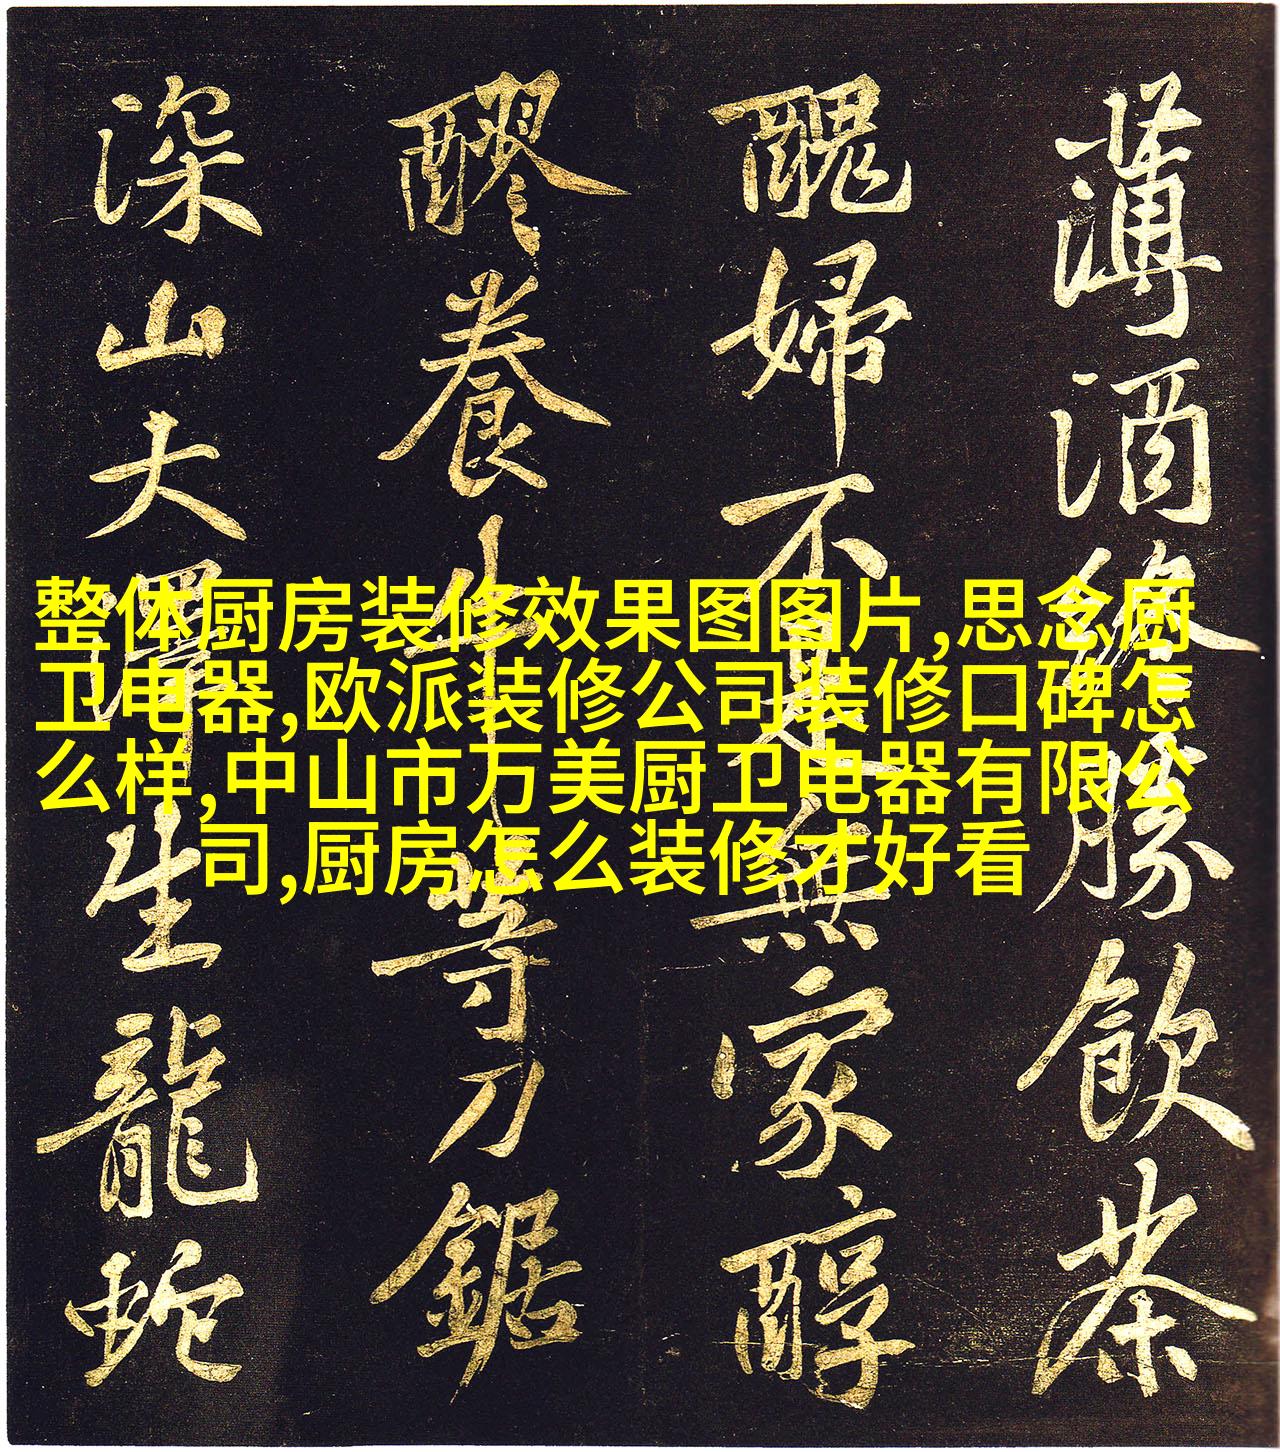 薄酒終勝飲茶
醜婦不是無家醇
醪養牛等刀鋸
深山大澤生龍蛇
整体厨房装修效果图图片,思念厨
卫电器,欧派装修公司装修口碑怎
么样,中山市万美厨卫电器有限公
司,厨房怎么装修才好看